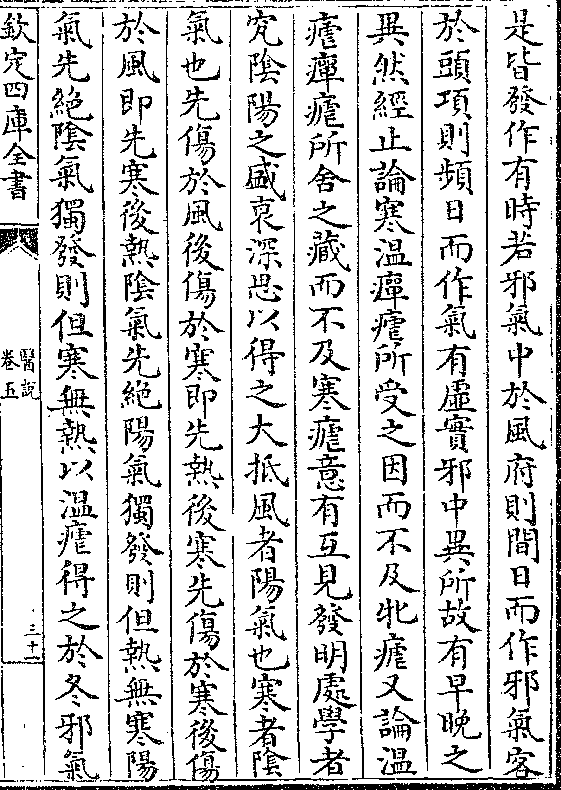 是皆發作有時若邪氣中於風府則間日而作邪氣客
於頭項則頻日而作氣有虛實邪中異所故有早晚之
異然經止論寒溫癉瘧所受之因而不及牝瘧又論溫
瘧癉瘧所舍之藏而不及寒瘧意有互見發明處學者
究陰陽之盛衰深思以得之大抵風者陽氣也寒者陰
氣也先傷於風後傷於寒即先熱後寒先傷於寒後傷
於風即先寒後熱陰氣先絶陽氣獨發則但熱無寒陽
氣先絶陰氣獨發則但寒無熱以溫瘧得之於冬邪氣
欽定四庫全書
醫説
卷五
三十一